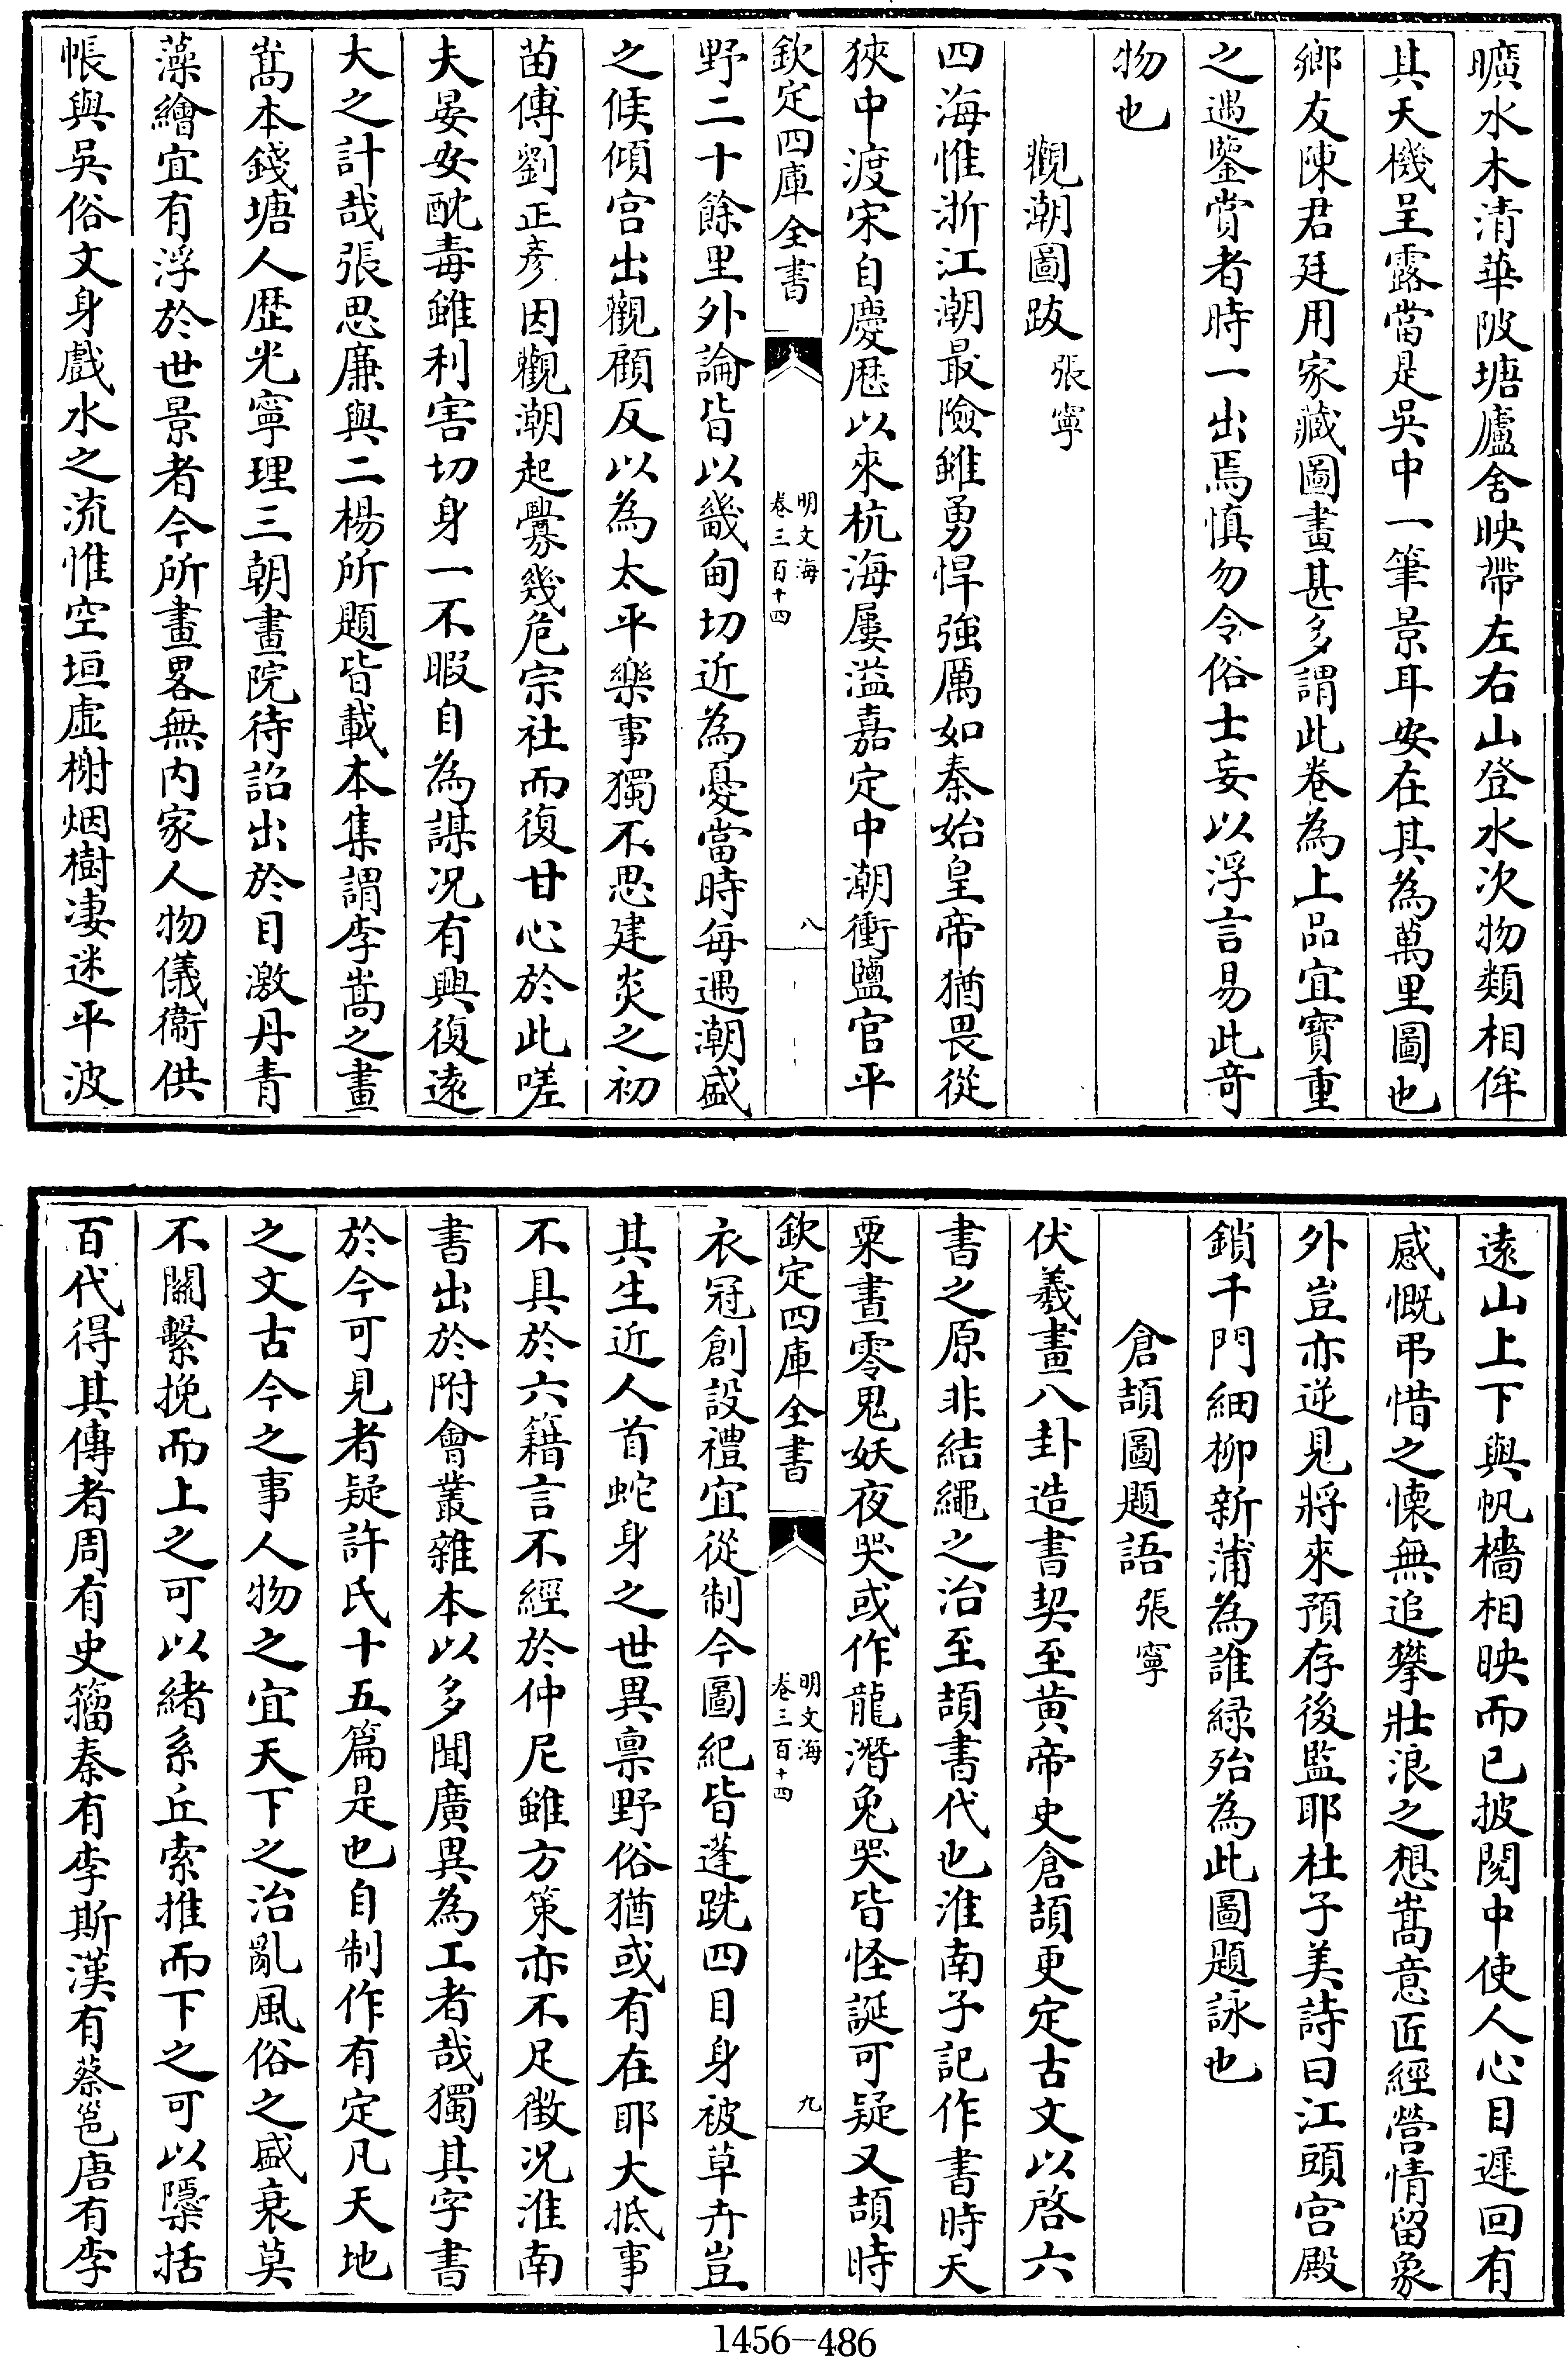 曠水木清華陂塘廬舍映帶左右山登水次物類相侔
其天機呈露當是吳中一筆景耳安在其為萬里圖也
鄉友陳君廷用家藏圖畫甚多謂此卷為上品宜寶重
之遇鑒賞者時一出焉慎勿令俗士妄以浮言易此奇
物也
觀潮圖跋 張寧
四海惟浙江潮最險雖勇悍強厲如秦始皇帝猶畏從
狹中渡宋自慶歷以來杭海屢溢嘉定中潮衝鹽官平
欽定四庫全書
明文海
卷三百十四
八
野二十餘里外論皆以畿甸切近為憂當時每遇潮盛
之候傾宫出觀顧反以為太平樂事獨不思建炎之初
苗傅劉正彦因觀潮起釁幾危宗社而復甘心於此嗟
夫晏安酖毒雖利害切身一不暇自為謀况有興復遠
大之計哉張思廉與二楊所題皆載本集謂李嵩之畫
嵩本錢塘人歷光寧理三朝畫院待詔出於目激丹青
藻繪宜有浮於世景者今所畫畧無内家人物儀衛供
帳與吳俗文身戲水之流惟空垣虛榭烟樹凄迷平波
遠山上下與帆檣相映而已披閱中使人心目遲回有
感慨弔惜之懷無追攀壯浪之想嵩意匠經營情留象
外豈亦逆見將來預存後監耶杜子美詩曰江頭宫殿
鎖千門細柳新蒲為誰緑殆為此圖題詠也
倉頡圖題語 張寧
伏羲畫八卦造書契至黄帝史倉頡更定古文以啓六
書之原非結繩之治至頡書代也淮南子記作書時天
粟晝零鬼妖夜哭或作龍潛兔哭皆怪誕可疑又頡時
欽定四庫全書
明文海
卷三百十四
九
衣冠創設禮宜從制今圖紀皆蓬跣四目身被草卉豈
其生近人首蛇身之世異禀野俗猶或有在耶大抵事
不具於六籍言不經於仲尼雖方策亦不足徵况淮南
書出於附會叢雜本以多聞廣異為工者哉獨其字書
於今可見者疑許氏十五篇是也自制作有定凡天地
之文古今之事人物之宜天下之治亂風俗之盛衰莫
不關繫挽而上之可以緒系丘索推而下之可以隱括
百代得其傳者周有史籀秦有李斯漢有蔡邕唐有李
1456-486